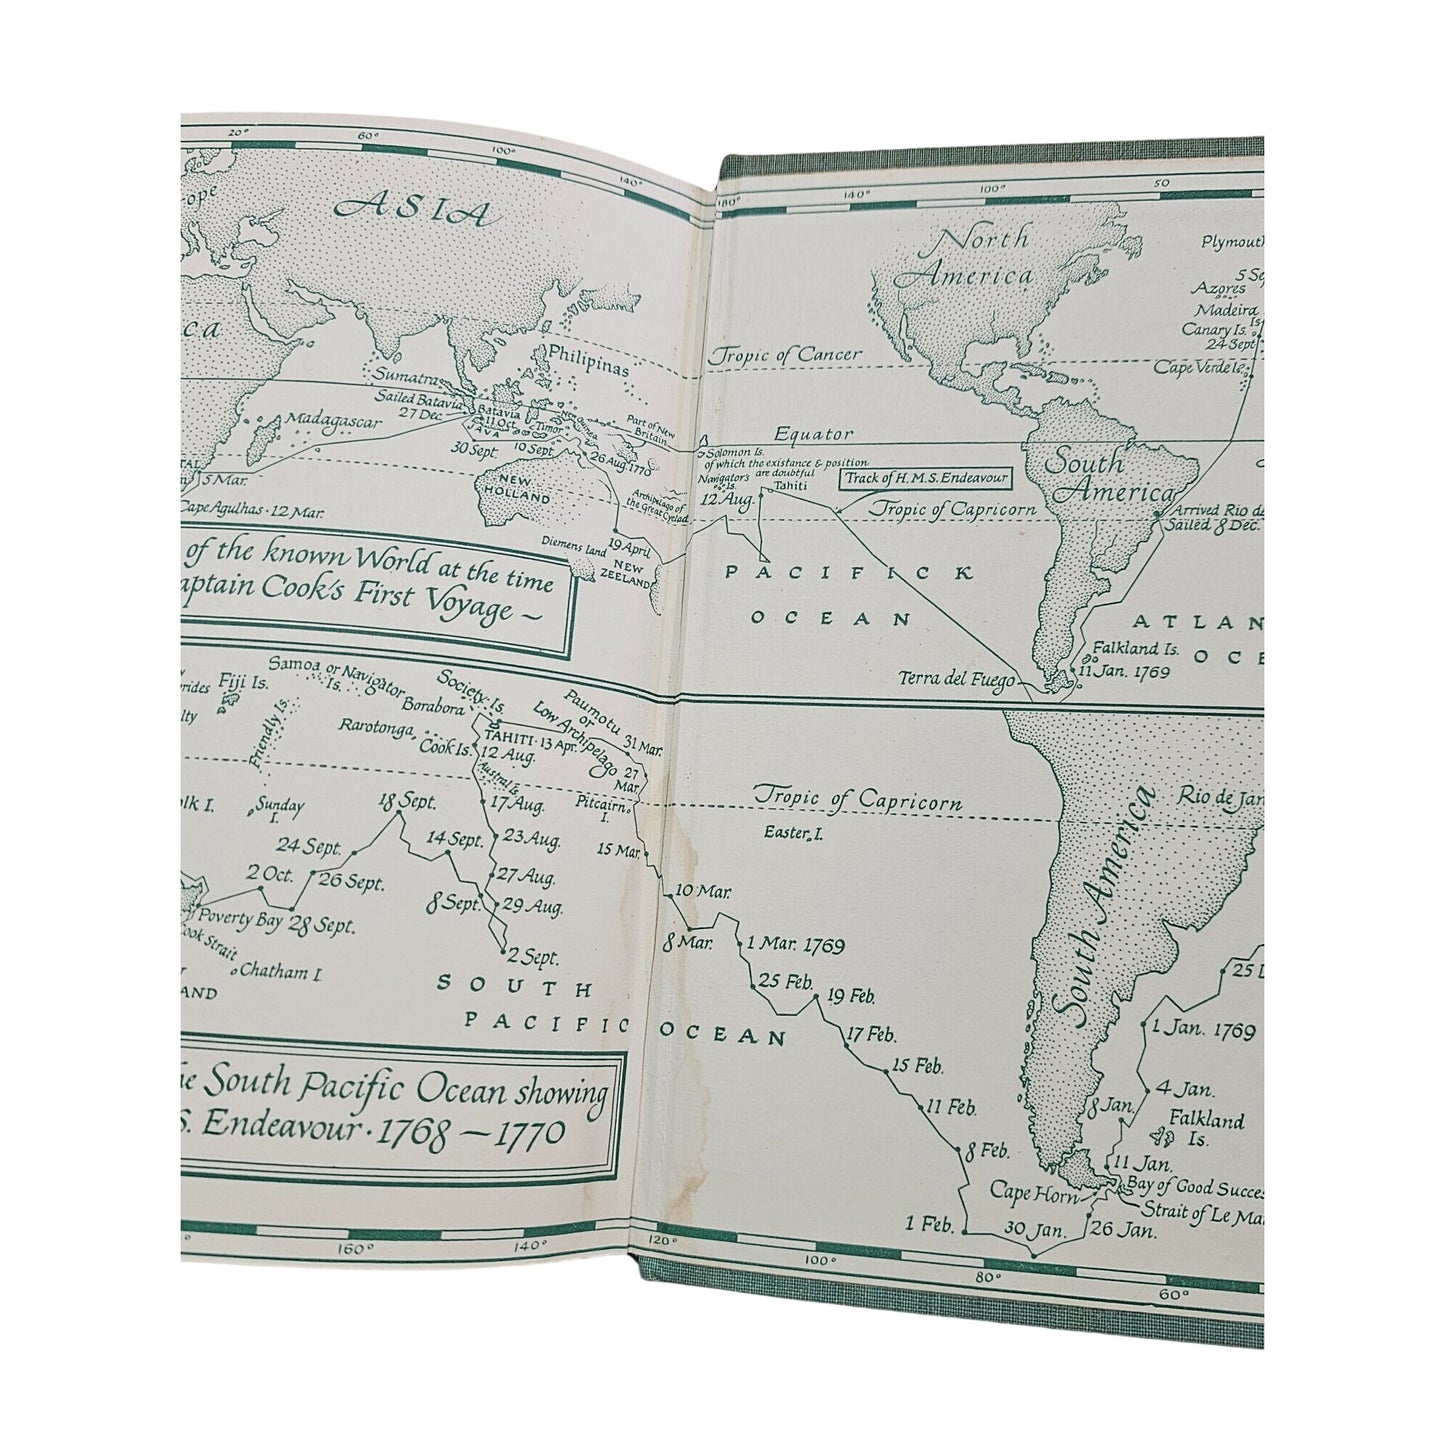 20° 60° 100° 140°
180° 140° 100° 50
ASIA
North
America
Plymouth
Azores
Madeira
Is.
Canary Is.
24 Sept.
Cape Verde Is.
Tropic of Cancer
Philipinas
Sumatra
Sailed Batavia
27 Dec.
Batavia
11 Oct.
JAVA
Timor
Madagascar
30 Sept. 10 Sept.
Part of New
Britain
26 Aug. 1770
Equator
Solomon Is.
of which the existance & position
are doubtful
Navigator's
Is.
Tahiti
12 Aug.
Track of H.M.S. Endeavour
Tropic of Capricorn
South
America
Arrived Rio de
Sailed 8 Dec.
NEW
HOLLAND
Archipelago of
the Great Cyclad
5 Mar.
Cape Agulhas · 12 Mar.
Diemens land
19 April
NEW
ZEELAND
PACIFICK
OCEAN
ATLAN
OCE
Falkland Is.
11 Jan. 1769
Terra del Fuego
of the known World at the time
aptain Cook's First Voyage ~
Samoa or Navigator
Is.
Fiji Is.
Friendly Is.
Society Is.
Borabora
Rarotonga
Cook Is.
TAHITI · 13 Apr.
12 Aug.
Austral Is.
Paumotu
or
Low Archipelago
31 Mar.
27
Mar.
Pitcairn
I.
15 Mar.
Sunday
I.
18 Sept.
17 Aug.
14 Sept.
23 Aug.
24 Sept.
27 Aug.
2 Oct.
26 Sept.
8 Sept.
29 Aug.
Poverty Bay
28 Sept.
2 Sept.
Cook Strait
Chatham I.
AND
SOUTH
PACIFIC OCEAN
Tropic of Capricorn
Easter I.
10 Mar.
8 Mar.
1 Mar. 1769
25 Feb.
19 Feb.
17 Feb.
15 Feb.
11 Feb.
8 Feb.
1 Feb.
30 Jan.
26 Jan.
South America
Rio de Jan
1 Jan. 1769
4 Jan.
8 Jan.
Falkland
Is.
11 Jan.
Bay of Good Succes
Strait of Le Ma
Cape Horn
he South Pacific Ocean showing
S. Endeavour · 1768 – 1770
160° 140° 120° 100° 80° 60°